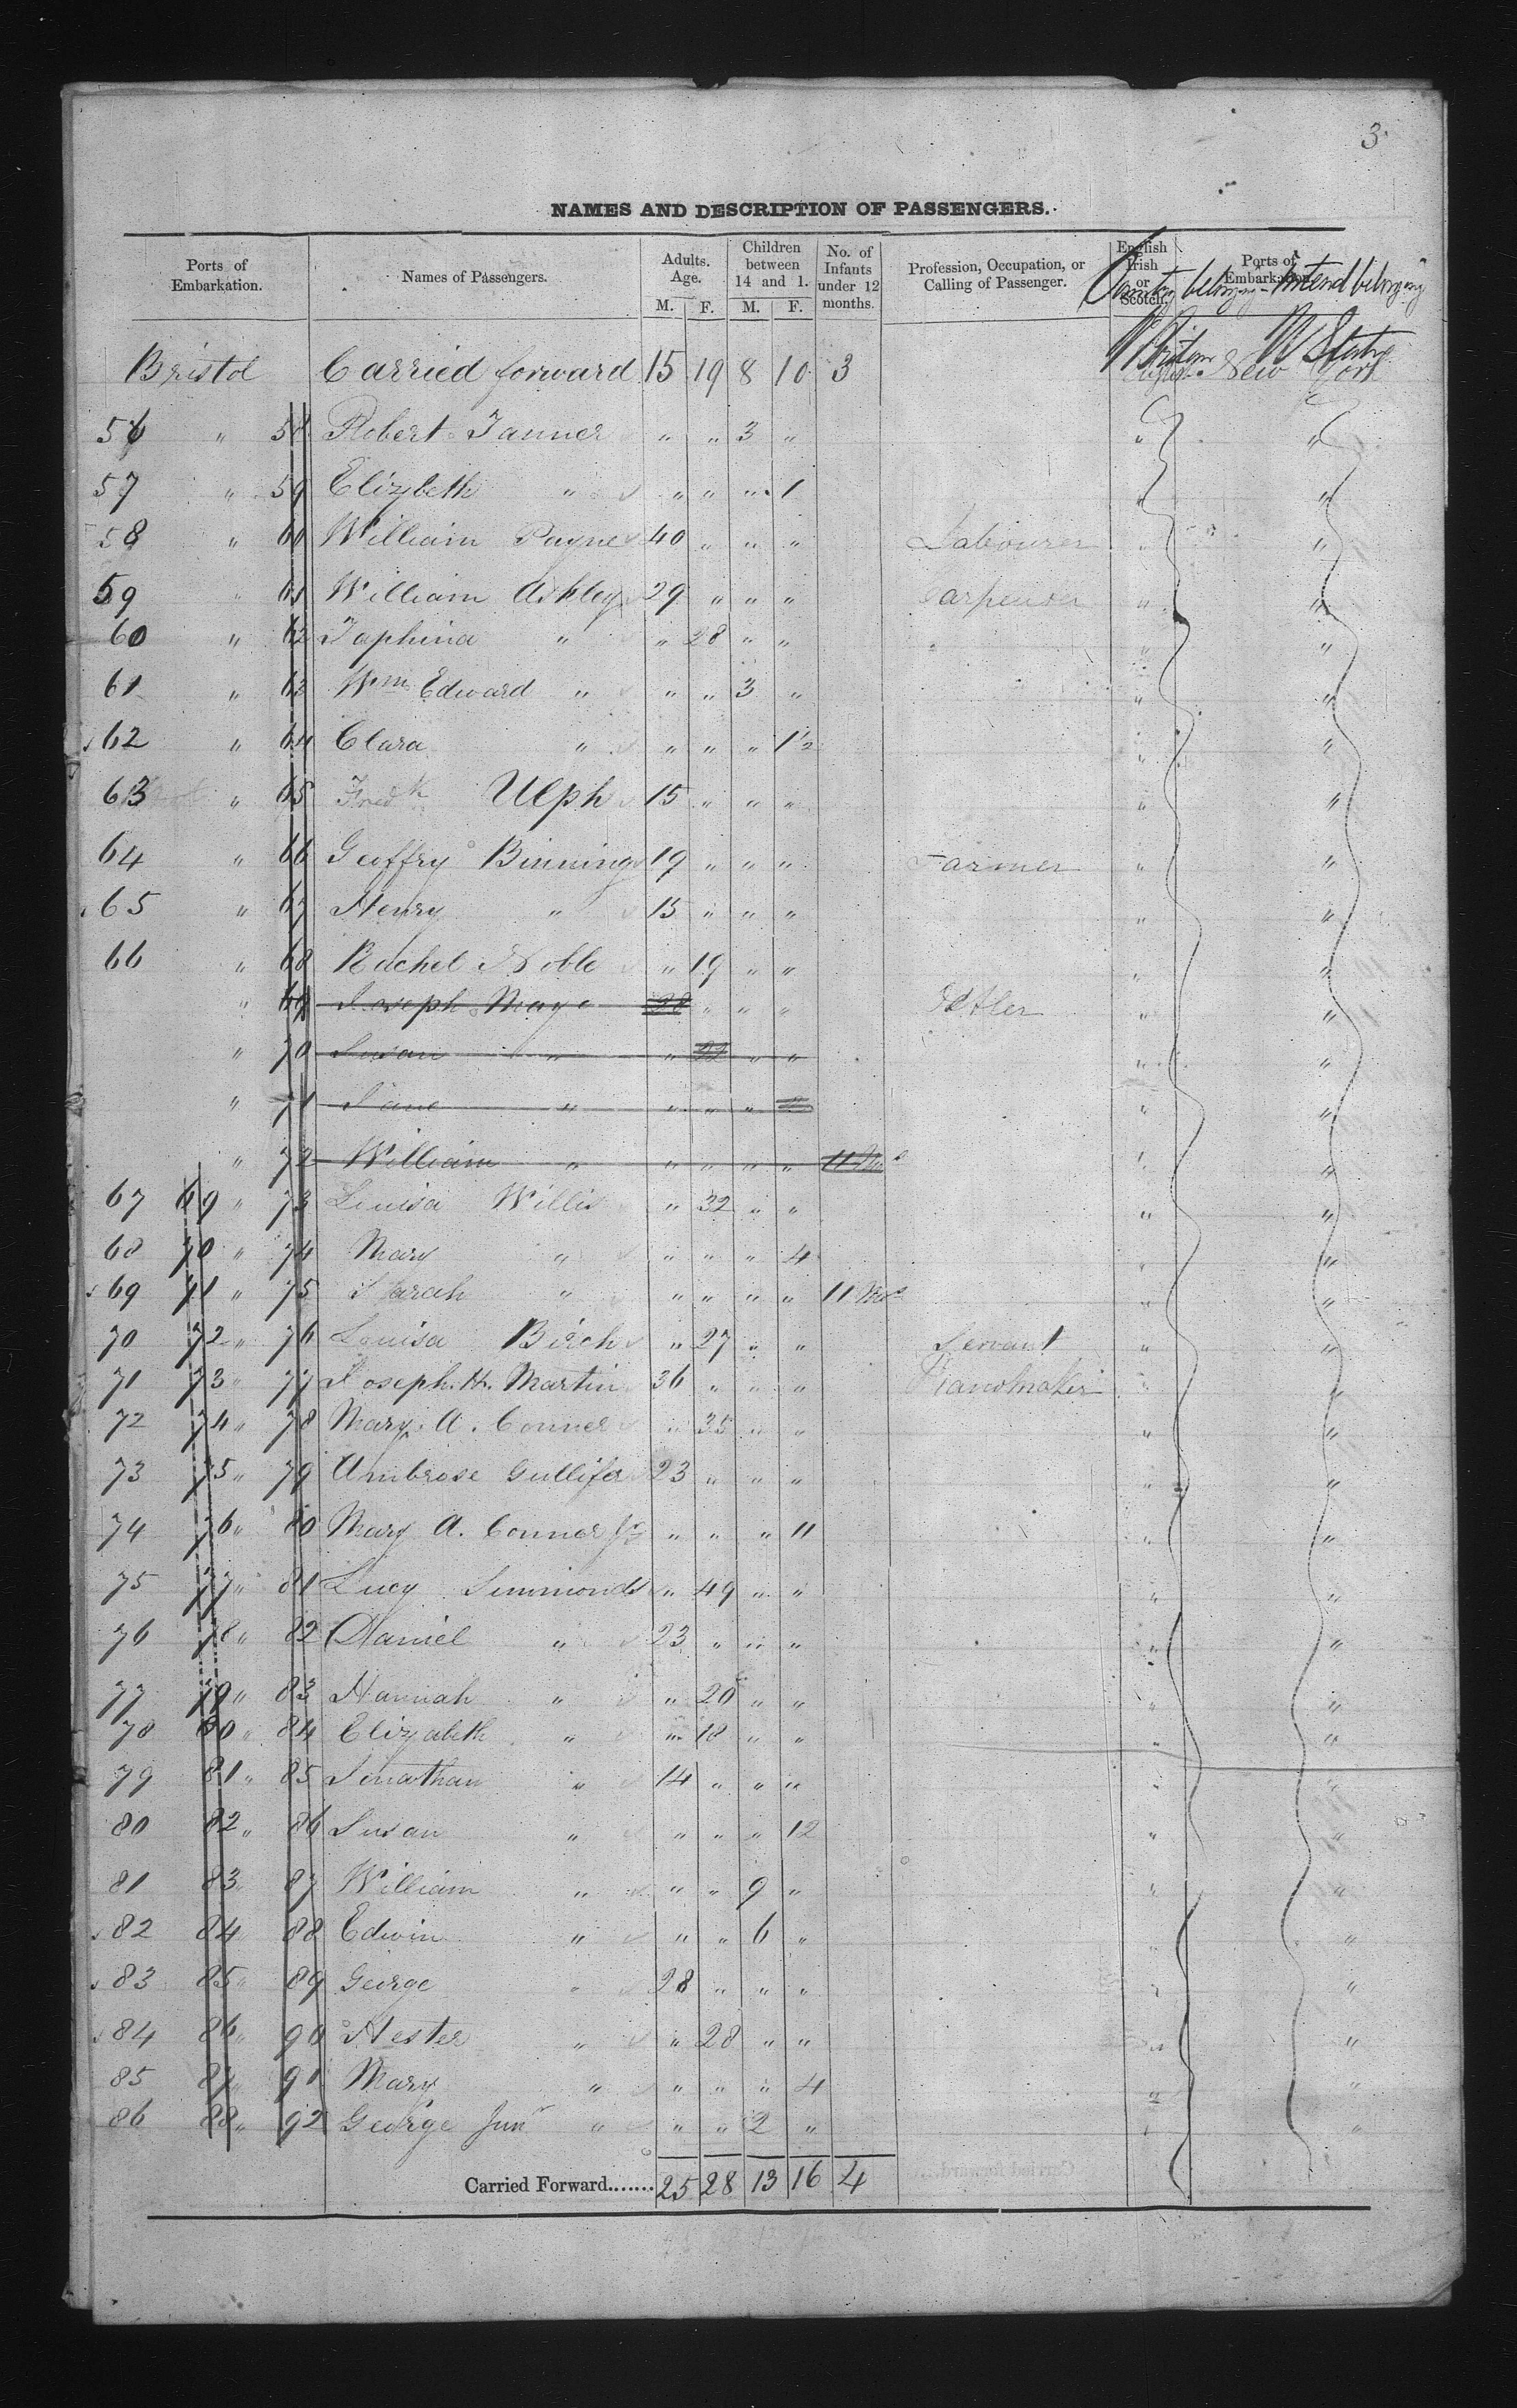 3
NAMES AND DESCRIPTION OF PASSENGERS.
Ports of Embarkation. Names of Passengers. Adults. Age. M. F. Children between 14 and 1. M. F. No. of Infants under 12 months. Profession, Occupation, or Calling of Passenger. English Irish or Scotch. Ports of Embarkation.
Country belonging Intend belonging
Bristol Carried forward 15 19 8 10 3 New York
56 " 58 Robert Tanner " " 3 " " "
57 " 59 Elizbeth " " " " 1 " "
58 " 60 William Payne 40 " " " Labourer " "
59 " 61 William Ashley 29 " " " Carpenter " "
60 " 62 Taphina " " 28 " " " "
61 " 63 Wm Edward " " " 3 " " "
62 " 64 Clara " " " " 1½ " "
63 " 65 Fredk Ulph 15 " " " " "
64 " 66 Geoffry Binning 19 " " " Farmer " "
65 " 67 Henry " 15 " " " " "
66 " 68 Rachel Noble " 19 " " " "
" 69 Joseph May 28 " " " " "
" 70 Susan " " 22 " " " "
" 71 Jane " " " " " "
" 72 William " " " " " 11 Mos " "
67 69 " 73 Louisa Willis " 32 " " " "
68 70 " 74 Mary " " " " 4 " "
69 71 " 75 Sarah " " " " " 11 Mos " "
70 72 " 76 Louisa Birch " 27 " " Servant " "
71 73 " 77 Joseph. H. Martin 36 " " " Pianomaker " "
72 74 " 78 Mary. A. Conner " 35 " " " "
73 75 " 79 Ambrose Gullifer 23 " " " " "
74 76 " 80 Mary A. Conner Jr " " " 11 " "
75 77 " 81 Lucy Simmonds " 49 " " " "
76 78 " 82 Daniel " 23 " " " " "
77 79 " 83 Hannah " " 20 " " " "
78 80 " 84 Elizabeth " " 18 " " " "
79 81 " 85 Jonathan " 14 " " " " "
80 82 " 86 Susan " " " " 12 " "
81 83 " 87 William " " " 9 " " "
82 84 " 88 Edwin " " " 6 " " "
83 85 " 89 George " 28 " " " " "
84 86 " 90 Hester " " 28 " " " "
85 87 " 91 Mary " " " " 4 " "
86 88 " 92 George Junr " " " 2 " " "
Carried Forward....... 25 28 13 16 4